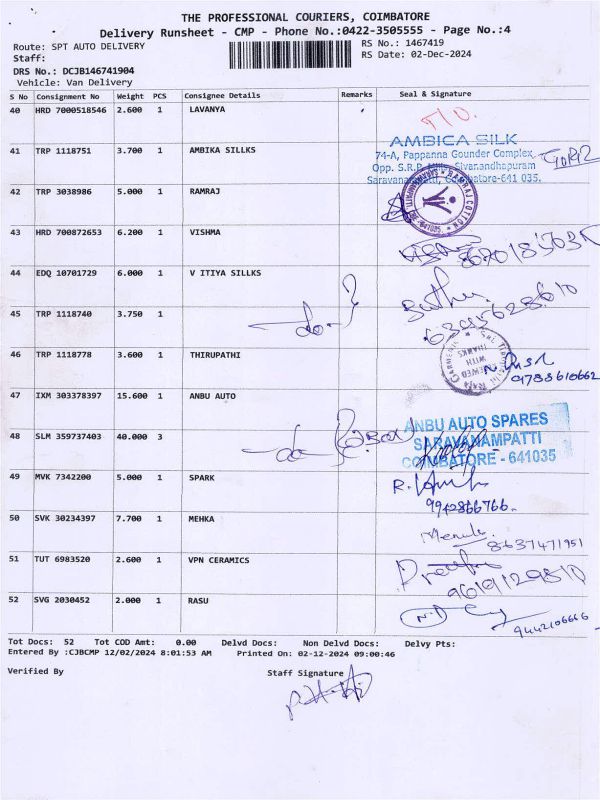 THE PROFESSIONAL COURIERS, COIMBATORE
Delivery Runsheet - CMP - Phone No.:0422-3505555 - Page No.:4
Route: SPT AUTO DELIVERY RS No.: 1467419
Staff: RS Date: 02-Dec-2024
DRS No.: DCJB146741904
Vehicle: Van Delivery
S No Consignment No Weight PCS Consignee Details Remarks Seal & Signature
40 HRD 7000518546 2.600 1 LAVANYA
AMBICA SILK
41 TRP 1118751 3.700 1 AMBIKA SILLKS 74-A, Pappanna Gounder Complex,
Opp. S.R.P. Sivanandhapuram
Coimbatore-641 035.
42 TRP 3038986 5.000 1 RAMRAJ RAMRAJ COTTON
43 HRD 700872653 6.200 1 VISHMA
44 EDQ 10701729 6.000 1 V ITIYA SILLKS
45 TRP 1118740 3.750 1 do
46 TRP 1118778 3.600 1 THIRUPATHI
9788610662
47 IXM 303378397 15.600 1 ANBU AUTO
ANBU AUTO SPARES
48 SLM 359737403 40.000 3 do SARAVANAMPATTI
COIMBATORE - 641035
49 MVK 7342200 5.000 1 SPARK
9942866766.
50 SVK 30234397 7.700 1 MEHKA
8637471951
51 TUT 6983520 2.600 1 VPN CERAMICS
52 SVG 2030452 2.000 1 RASU
9442106666
Tot Docs: 52 Tot COD Amt: 0.00 Delvd Docs: Non Delvd Docs: Delvy Pts:
Entered By :CJBCMP 12/02/2024 8:01:53 AM Printed On: 02-12-2024 09:00:46
Verified By Staff Signature